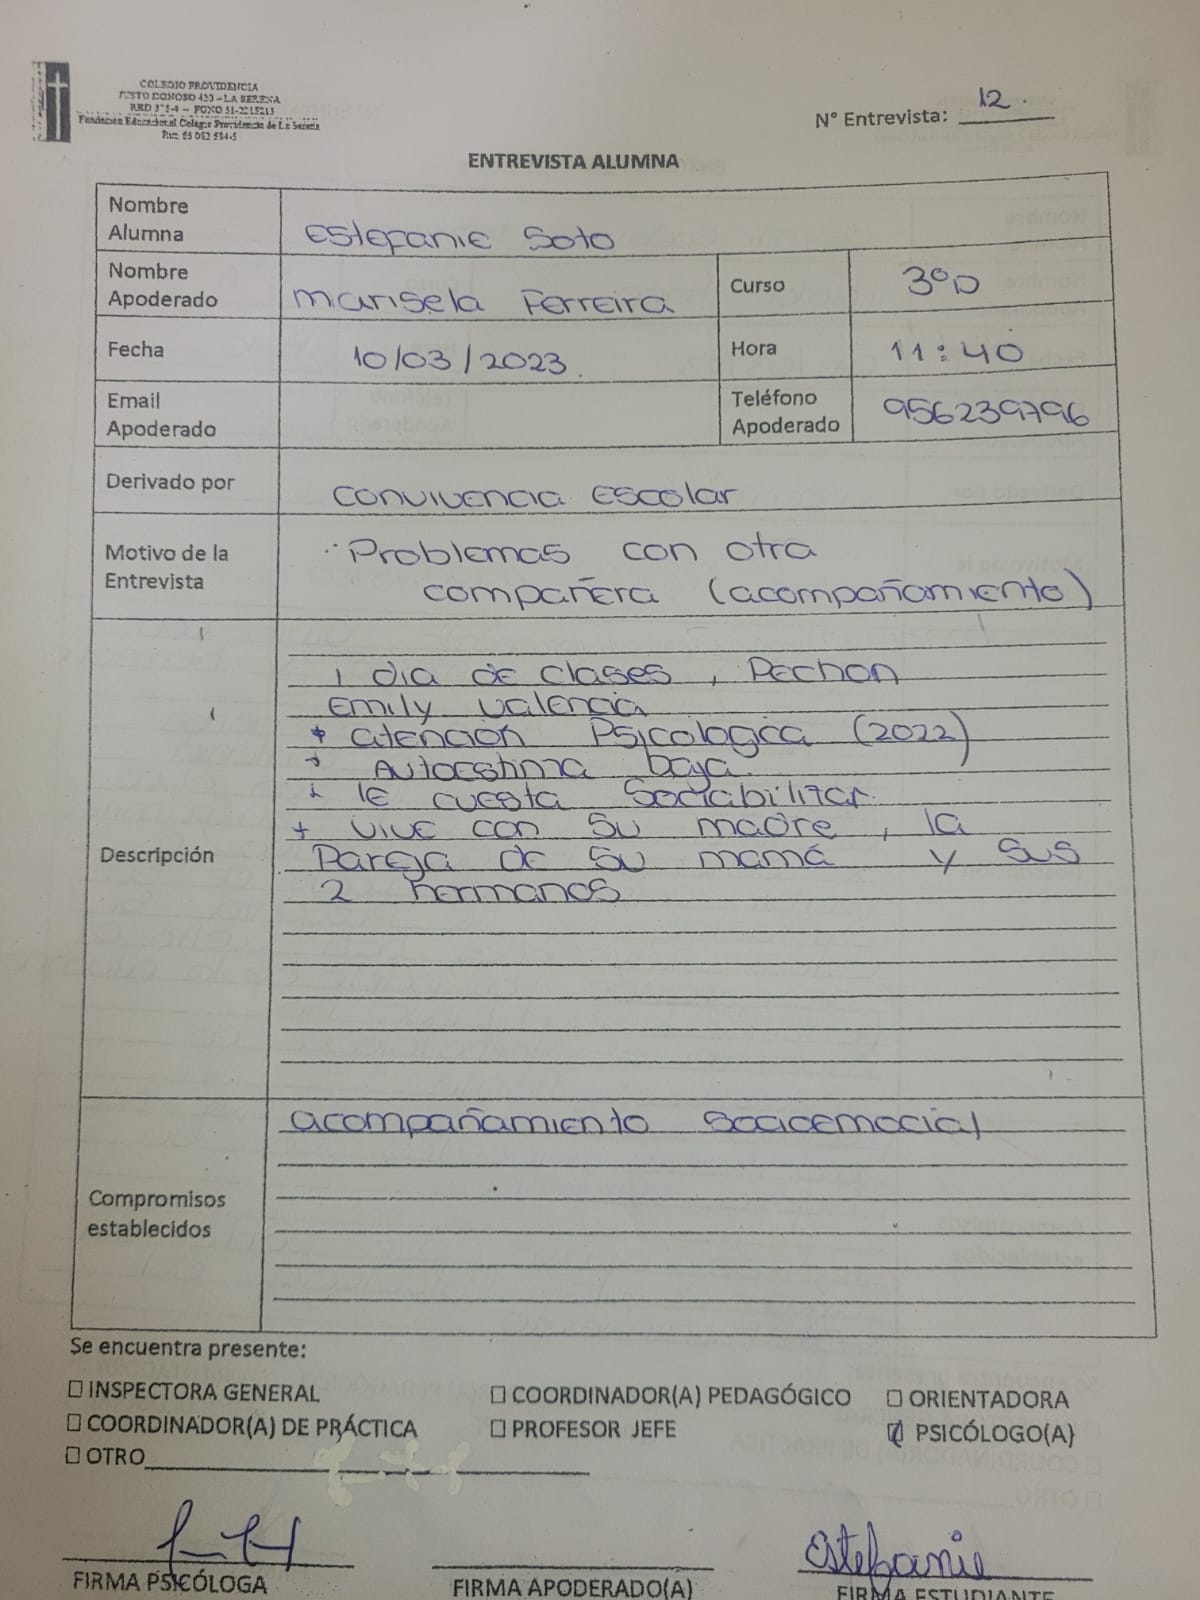 COLEGIO PROVIDENCIA
JUSTO DONOSO 420 - LA SERENA
RBD 575-4 - FONO 51-2215213
Fundación Educacional Colegio Providencia de La Serena
N° Entrevista: 12.
ENTREVISTA ALUMNA
Nombre Alumna Estefanie Soto
Nombre Apoderado Marisela Ferreira Curso 3°D
Fecha 10/03/2023. Hora 11:40
Email Apoderado Teléfono Apoderado 956239796
Derivado por Convivencia Escolar
Motivo de la Entrevista Problemas con otra
compañera (acompañamiento)
Descripción
1 dia de clases, Pechon
Emily Valencia
* atencion Psicologica (2022)
+ Autoestima baja.
+ le cuesta Sociabilizar.
+ vive con su madre, la
Pareja de su mamá y sus
2 hermanos
Compromisos establecidos
acompañamiento Socioemocial
Se encuentra presente:
INSPECTORA GENERAL COORDINADOR(A) PEDAGÓGICO ORIENTADORA
COORDINADOR(A) DE PRÁCTICA PROFESOR JEFE PSICÓLOGO(A)
OTRO
Estefanie
FIRMA PSICÓLOGA FIRMA APODERADO(A) FIRMA ESTUDIANTE